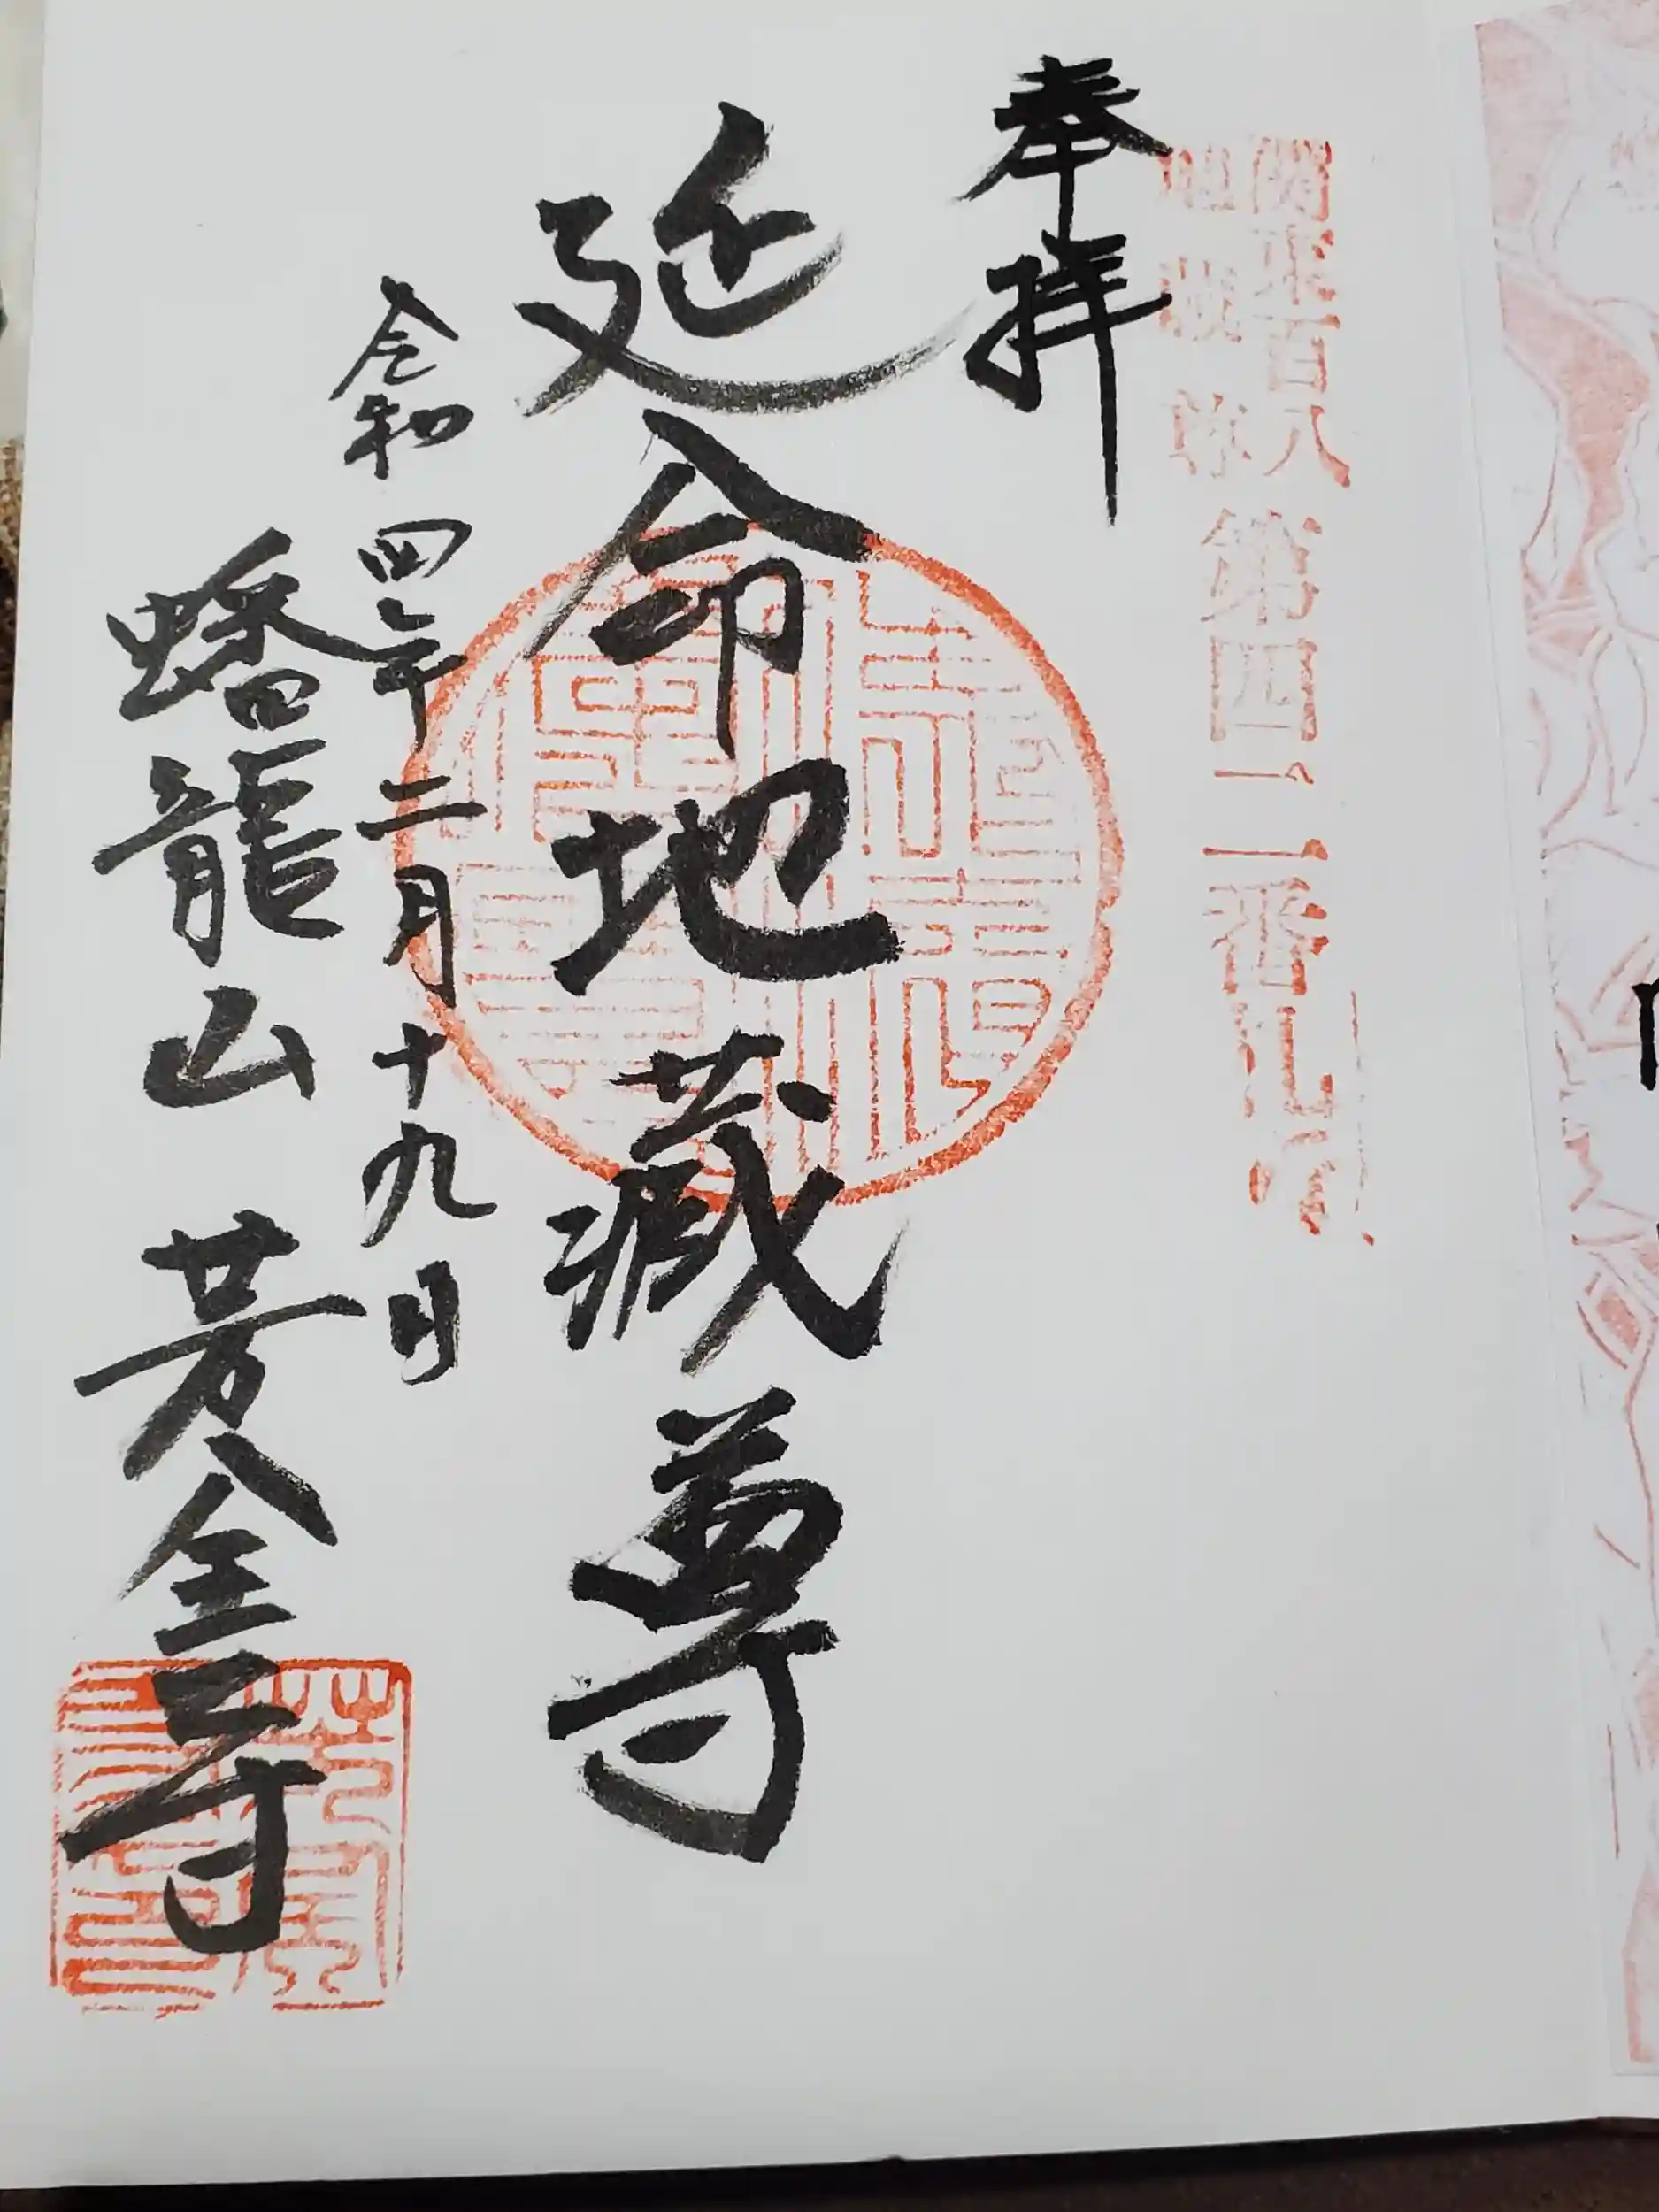 関東百八
地蔵尊
第四二番札所
奉拝
延命地藏尊
令和四年二月十九日
蟠龍山 芳全寺